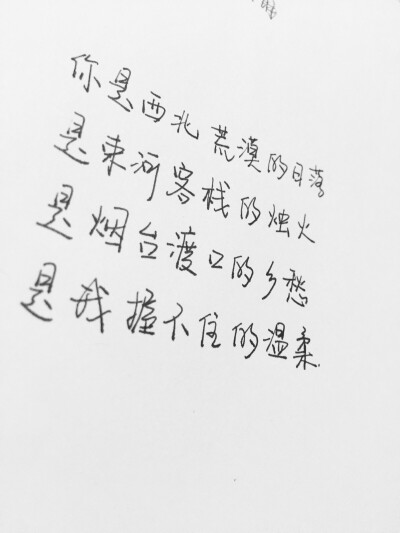 你是西北荒漠的日落
是束河客栈的烛火
是烟台渡口的乡愁
是我握不住的温柔